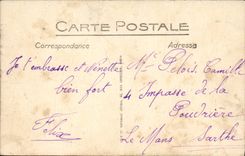 CARTE POSTALE
Correspondance
Adresse
Je t'embrasse et Nénette
bien fort
Félix
Mr Pelois Camille
4 Impasse de la
Poudrière
Le Mans Sarthe